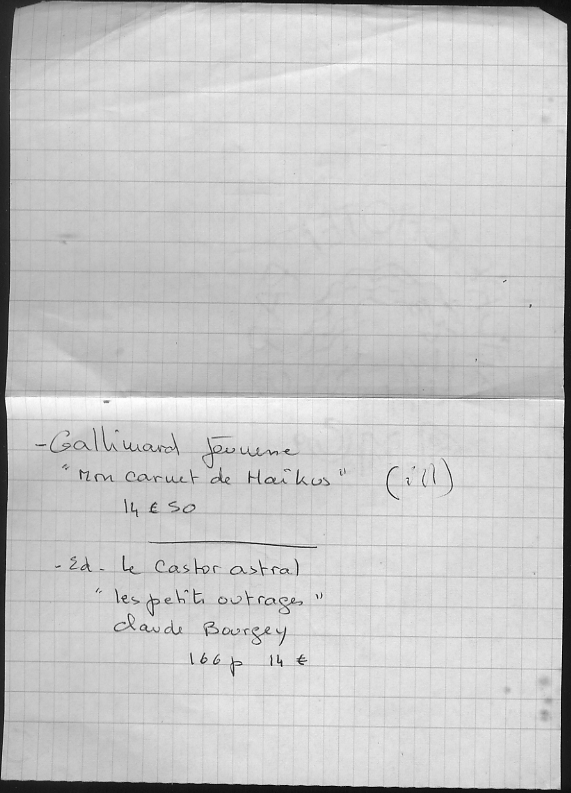 - Gallimard Jeunesse
"Mon carnet de Haïkus" (ill)
14 € 50
- Ed. Le Castor astral
"les petits outrages"
Claude Bourgey
166 p 14 €